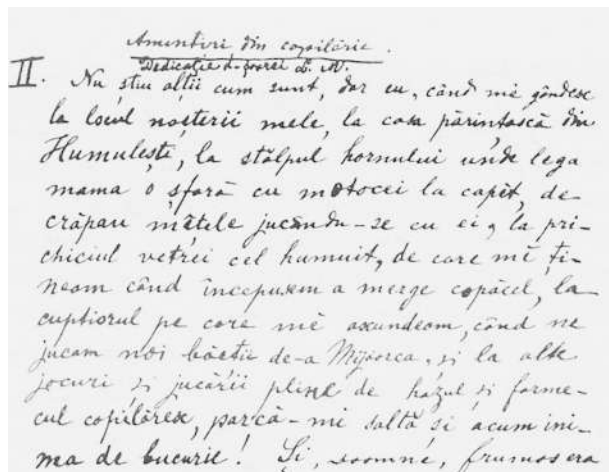 Amintiri din copilărie.
Dedicație d-șoarei L. M.
II. Nu știu alții cum sunt, dar eu, când mĕ gândesc
la locul nașterii mele, la casa părintască din
Humulești, la stâlpul hornului unde lega
mama o șfară cu motocei la capĕt, de
crăpau mâțele jucându-se cu ei, la pri-
chiciul vetrei cel humuit, de care mĕ ți-
neam când începusem a merge copăcel, la
cuptiorul pe care mĕ ascundeam, când ne
jucam noi băeții de-a Mijoarca, și la alte
jocuri și jucării pline de hazul și farme-
cul copilăresc, parcă-mi saltă și acum ini-
ma de bucurie! Și, Doamne, frumos era